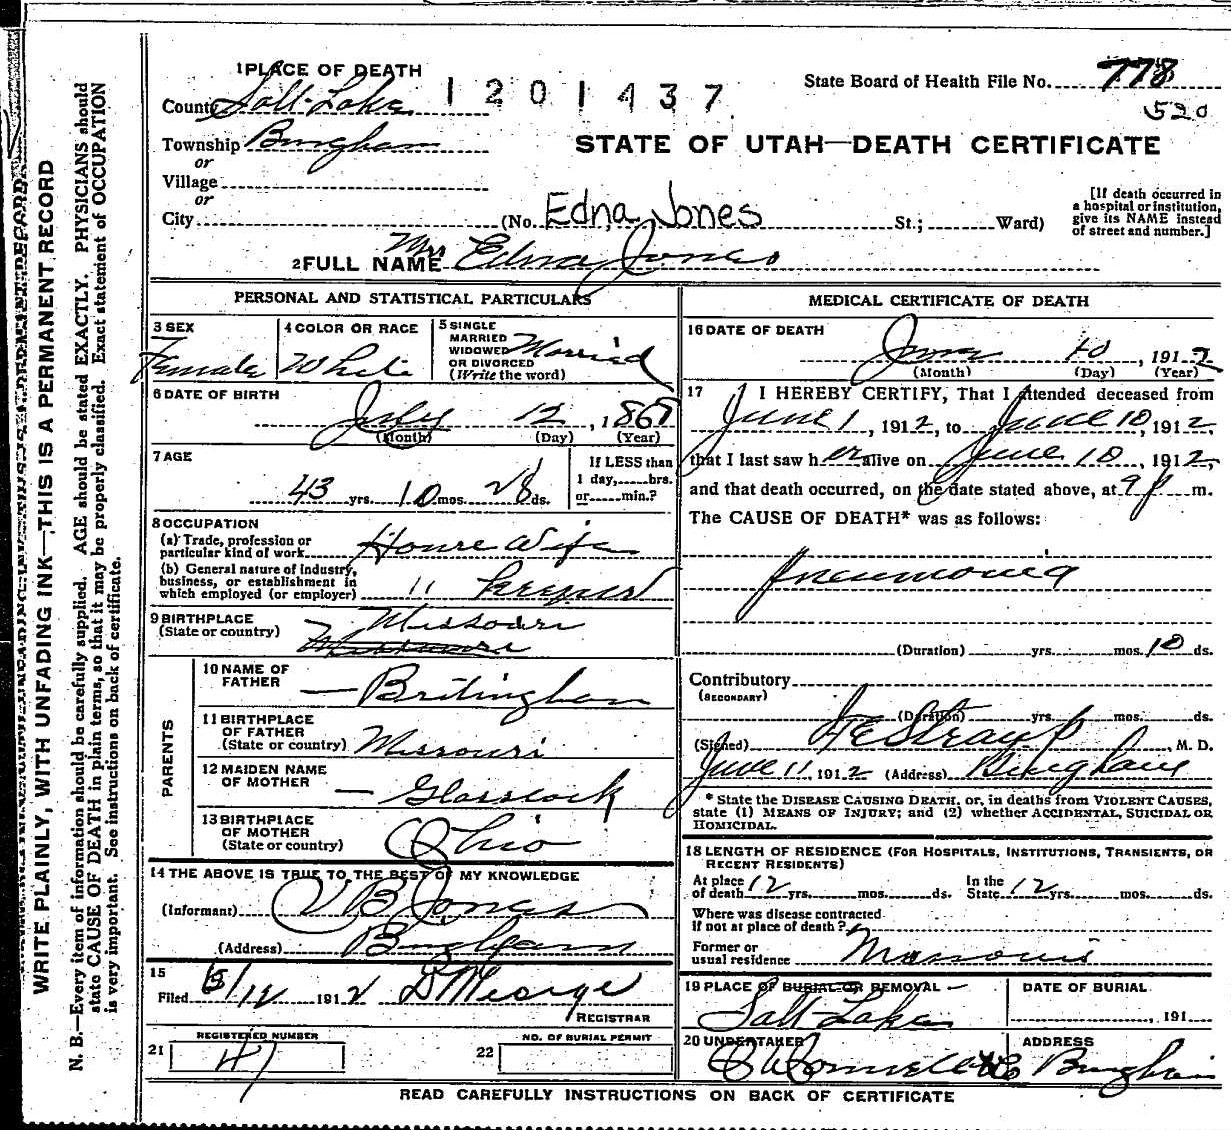 1 PLACE OF DEATH
County Salt Lake
1201437
State Board of Health File No. 778
520
Township Bingham
or
Village
or
City (No. Edna Jones St.; Ward)
STATE OF UTAH—DEATH CERTIFICATE
[If death occurred in
a hospital or institution,
give its NAME instead
of street and number.]
2 FULL NAME Mrs Edna Jones
PERSONAL AND STATISTICAL PARTICULARS
3 SEX
Female
4 COLOR OR RACE
White
5 SINGLE
MARRIED
WIDOWED
OR DIVORCED
(Write the word)
Married
6 DATE OF BIRTH
July 12, 1868
(Month) (Day) (Year)
7 AGE
43 yrs. 10 mos. 28 ds.
If LESS than
1 day, hrs.
or min.?
8 OCCUPATION
(a) Trade, profession or
particular kind of work House Wife
(b) General nature of industry,
business, or establishment in
which employed (or employer) " keeper
9 BIRTHPLACE
(State or country)
Missouri
Missouri
PARENTS
10 NAME OF
FATHER — Britingham
11 BIRTHPLACE
OF FATHER
(State or country) Missouri
12 MAIDEN NAME
OF MOTHER — Glasscock
13 BIRTHPLACE
OF MOTHER
(State or country) Ohio
14 THE ABOVE IS TRUE TO THE BEST OF MY KNOWLEDGE
(Informant) V B Jones
(Address) Bingham
15
Filed 6/12 1912
REGISTRAR
REGISTERED NUMBER
21 47
NO. OF BURIAL PERMIT
22
MEDICAL CERTIFICATE OF DEATH
16 DATE OF DEATH
June 10, 1912
(Month) (Day) (Year)
17 I HEREBY CERTIFY, That I attended deceased from
June 1, 1912, to June 10, 1912,
that I last saw her alive on June 10, 1912,
and that death occurred, on the date stated above, at 9 p m.
The CAUSE OF DEATH* was as follows:
Pneumonia
(Duration) yrs. mos. 10 ds.
Contributory
(SECONDARY)
(Duration) yrs. mos. ds.
(Signed) F E Straup, M. D.
June 11, 1912 (Address) Bingham
* State the DISEASE CAUSING DEATH, or, in deaths from VIOLENT CAUSES,
state (1) MEANS OF INJURY; and (2) whether ACCIDENTAL, SUICIDAL OR
HOMICIDAL.
18 LENGTH OF RESIDENCE (FOR HOSPITALS, INSTITUTIONS, TRANSIENTS, OR
RECENT RESIDENTS)
At place
of death 12 yrs. mos. ds.
In the
State 12 yrs. mos. ds.
Where was disease contracted
if not at place of death?
Former or
usual residence Missouri
19 PLACE OF BURIAL OR REMOVAL
Salt Lake
DATE OF BURIAL
, 191
20 UNDERTAKER
ADDRESS
Bingham
READ CAREFULLY INSTRUCTIONS ON BACK OF CERTIFICATE
WRITE PLAINLY, WITH UNFADING INK—THIS IS A PERMANENT RECORD
N. B.—Every item of information should be carefully supplied. AGE should be stated EXACTLY. PHYSICIANS should
state CAUSE OF DEATH in plain terms, so that it may be properly classified. Exact statement of OCCUPATION
is very important. See instructions on back of certificate.